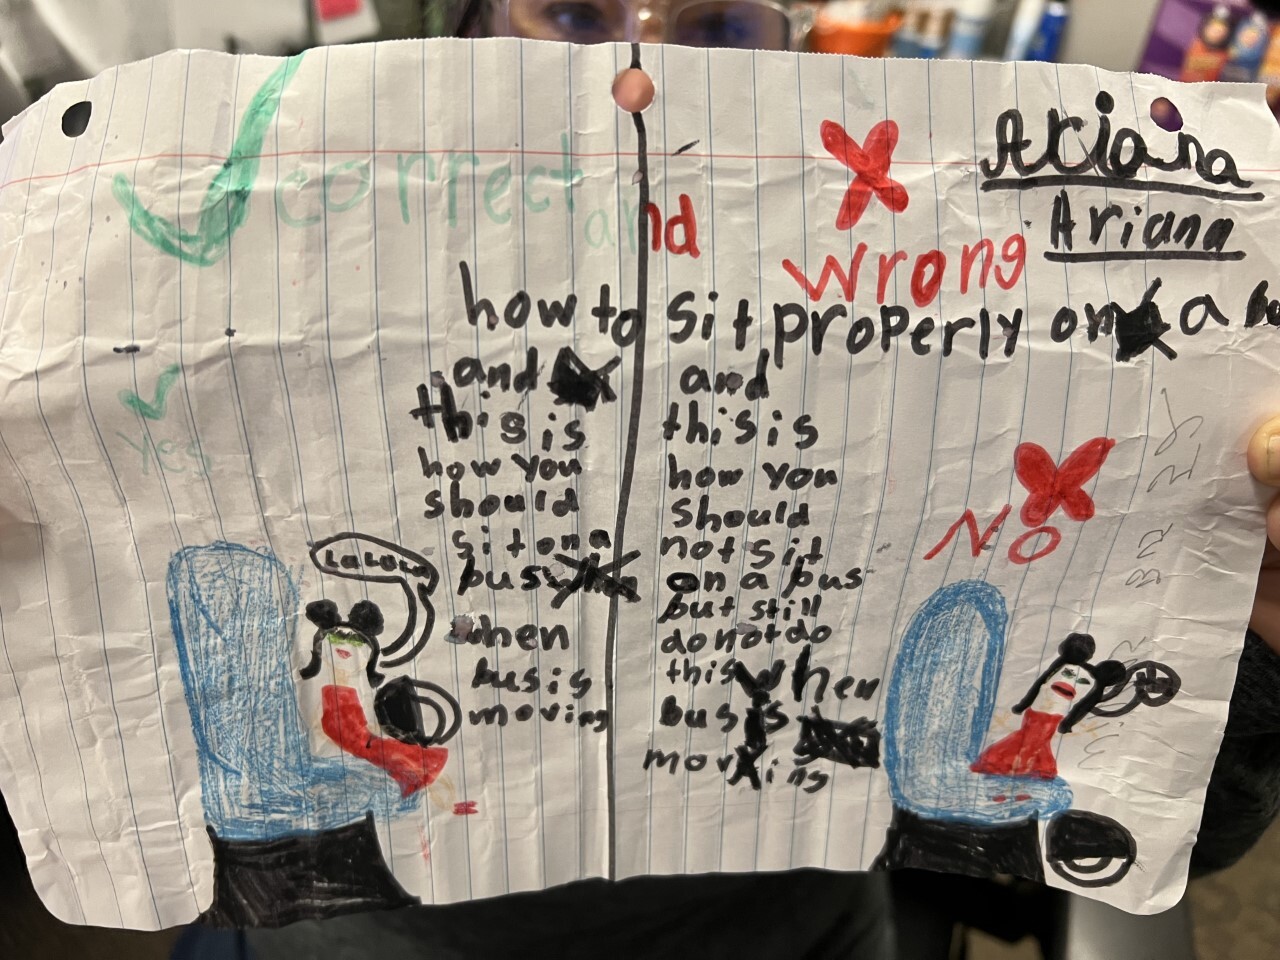 Ariana
Ariana
correct and wrong
how to sit properly on a
and
this is
how you
should
sit on a
bus
when
bus is
moving
and
this is
how you
should
not sit
on a bus
but still
do not do
this when
bus is
moving
yes
LaLaLa
NO